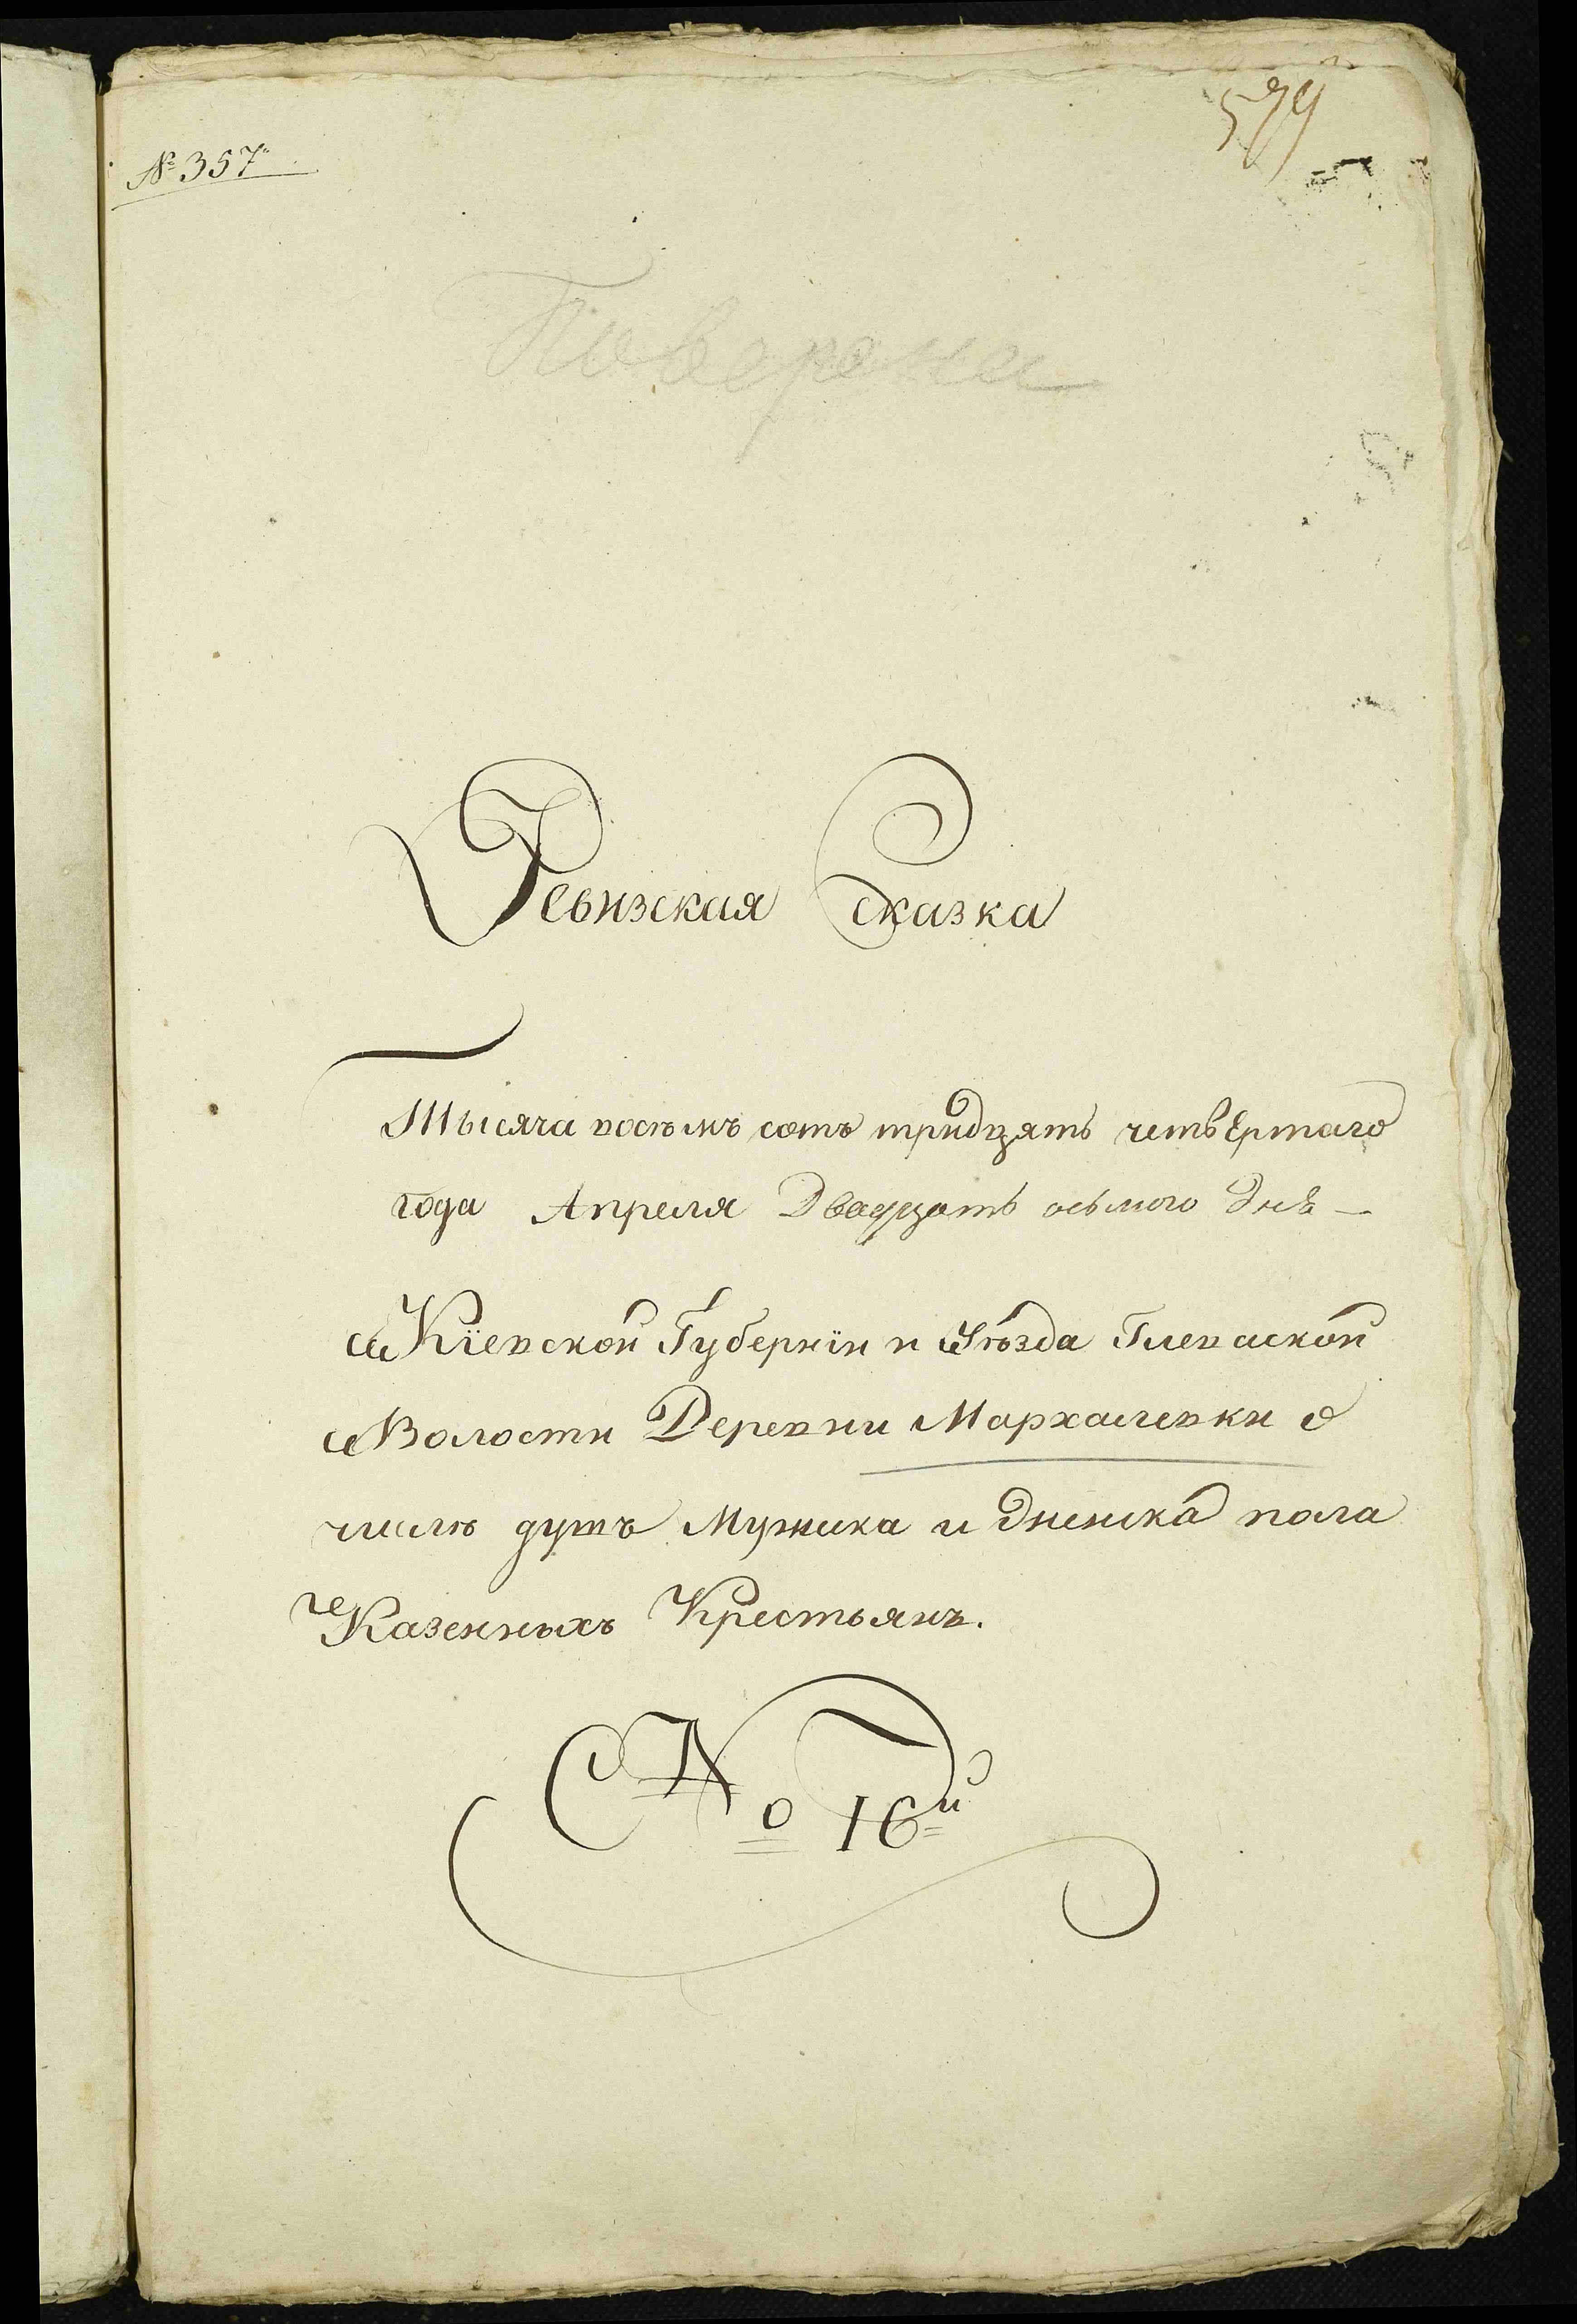 № 357
579
Поверена
Ревизская Сказка
Тысяча восемъ сотъ тридцять четвертаго
года Апреля Двадцать осьмого дня —
Кіевской Губерніи и Уѣзда Глеваской
Волости Деревни Мархалевки о
числѣ душъ Мужска и Женска пола
Казенныхъ Крестьянъ.
No 16й